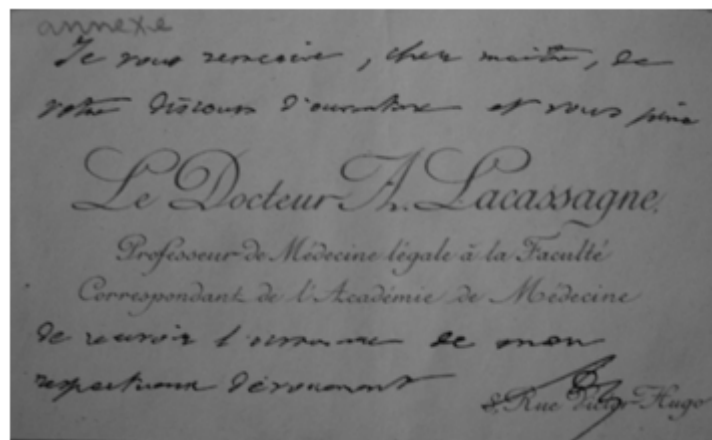 annexe
Je vous remercie, cher maître, de
votre discours d'ouverture et vous prie
Le Docteur A. Lacassagne,
Professeur de Médecine légale à la Faculté
Correspondant de l'Académie de Médecine
de recevoir l'assurance de mon
respectueux dévouement
8, Rue Victor-Hugo